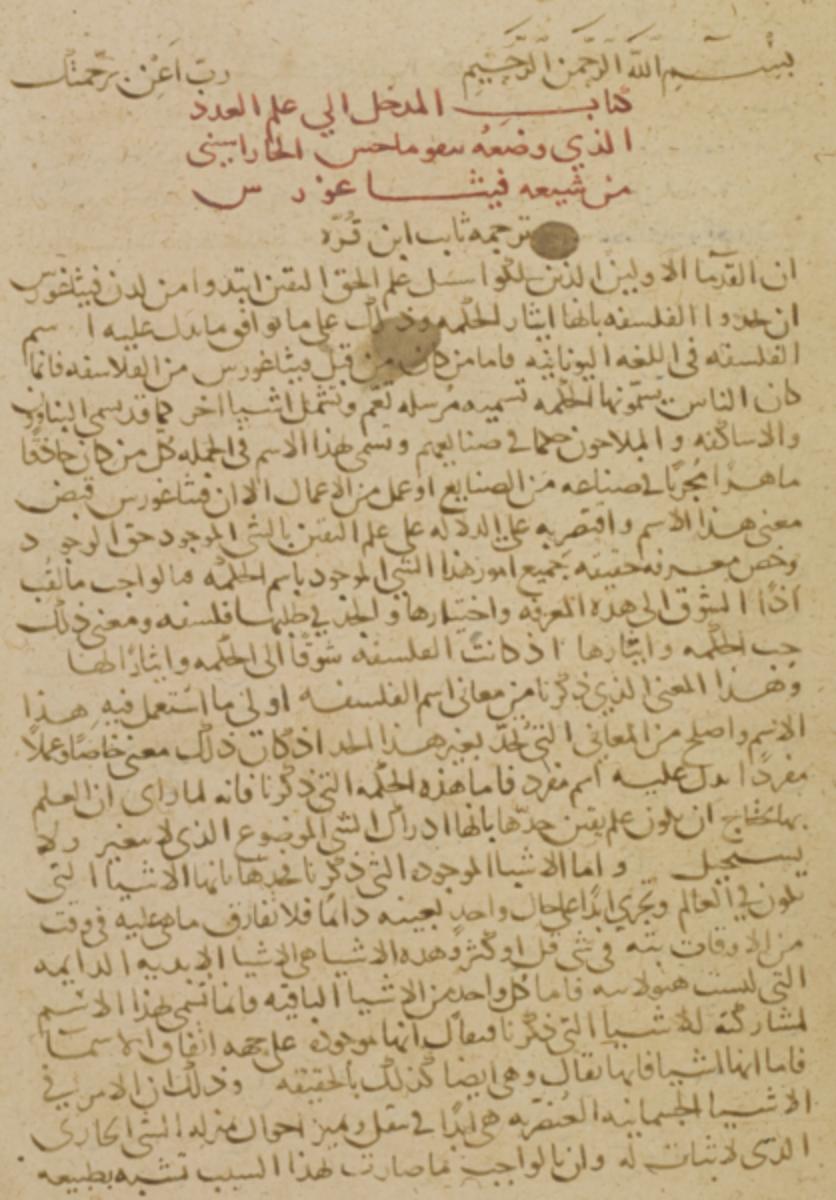 بسم الله الرحمن الرحيم رب اعن برحمتك
كتاب المدخل الي علم العدد
الذي وضعه نيقوماخس الجاراسيني
من شيعه فيثاغورس
ترجمه ثابت ابن قره
ان القدما الاولين الذين سلكوا سبيل علم الحق اليقين ابتدوا من لدن فيثاغورس
ان حدوا الفلسفه بانها ايثار الحكمه وذلك على ما يوافق ما يدل عليه اسم
الفلسفه في اللغه اليونانيه فاما من كان من قبل فيثاغورس من الفلاسفه فانما
كان الناس يسمونها الحكمه تسميه مرسله تعم وتشمل اشيا اخر كما قد يسمى البناوون
والاساكفه و الملاحون حكما في صنايعهم وتسمى بهذا الاسم في الجمله كل من كان حاذقا
ماهرا مجربا في صناعه من الصنايع او عمل من الاعمال الا ان فيثاغورس قبض
معنى هذا الاسم واقتصر به علي الدلاله علي علم اليقين بالشي الموجود حق الوجود
وخص معرفه حقيقه جميع امور هذا الشي الموجود باسم الحكمه فبالواجب ما لقب
اذا الشوق الى هذه المعرفه واختيارها والجد في طلبها فلسفه ومعنى ذلك
حب الحكمه وايثارها اذ كانت الفلسفه شوقا الى الحكمه وايثارا لها
وهذا المعنى الذي ذكرنا من معاني اسم الفلسفه اولى ما استعمل فيه هذا
الاسم واصلح من المعاني التي تحد بغير هذا الحد اذ كان ذلك معنى خاصا وعملا
مفردا يدل عليه اسم مفرد فاما هذه الحكمه التي ذكرنا فانه لما راى ان العلم
بها يحتاج ان يكون علم يقين حدها بانها ادراك الشي الموضوع الذي لا يتغير ولا
يستحيل واما الاشيا الموجوده التي ذكرنا في حدها بانها الاشيا التي
تكون في العالم وتجري ابدا على حال واحد بعينه دائما فلا تفارق ما هي عليه في وقت
من الاوقات بته في شي قل او كثر وهذه الاشيا هي الاشيا الابديه الدايمه
التي ليست هيولانيه فاما كل واحد من الاشيا الباقيه فانما تسمى بهذا الاسم
لمشاركته للاشيا التي ذكرنا فيقال انها موجوده على جهه اتفاق الاسما
فاما انها اشيا فانها يقال وهي ايضا كذلك بالحقيقه وذلك ان الامر في
الاشيا الجسمانيه العنصريه هي ابدا في تنقل وتغير احوال بمنزله الشي الجاري
الذي لا ثبات له وان بالواجب ما صارت لهذا السبب تشبه بطبيعه